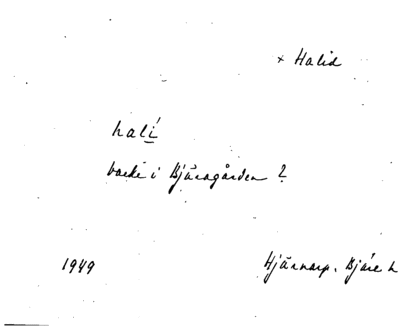 × Halid
halí
backe i Bjäragården ?
1949
Hjärnarp. Bjäre h